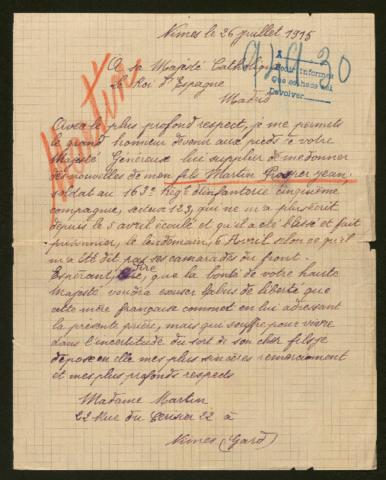 Nimes le 26 juillet 1915
A sa Majesté Catholique
Le Roi d'Espagne
Madrid
Martin
30
A
Para informes
Devolver
Avec le plus profond respect, je me permets
le grand honneur de venir aux pieds de votre
Majesté Généreux lui supplier de me donner
des nouvelles de mon fils Martin jean,
soldat au 163e Régt d'infanterie cinquième
compagnie, secteur 123, qui ne m'a plus écrit
depuis le 5 avril écoulé et qu'il a été blessé et fait
prisonnier, le lendemain, 6 Avril selon ce qu'il
m'a été dit par ses camarades du front.
Espérant, Sire, que la bonté de votre haute
Majesté voudra excuser l'abus de liberté que
cette mère française commet en lui adressant
la présente prière, mais qui souffre pour vivre
dans l'incertitude du sort de son cher fils je
dépose en elle mes plus sincères remerciement
et mes plus profonds respects
Madame Martin
22 Rue du 22 à
Nimes (Gard)